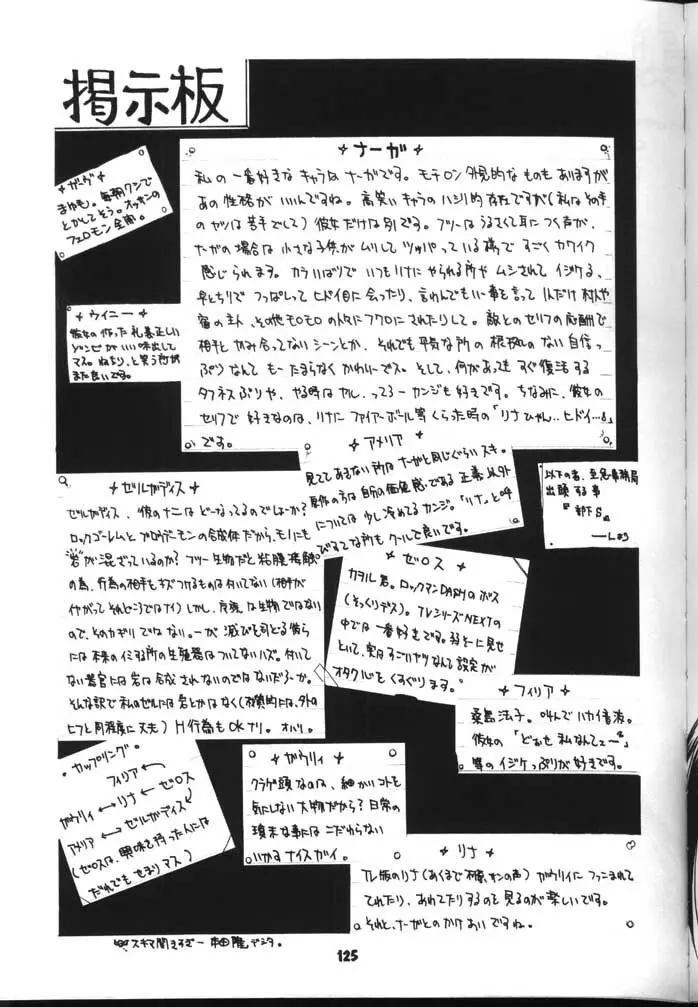 掲示板
ナーガ
私の一番好きなキャラはナーガです。モチロン外見的なものもありますが
あの性格がいいんですね。高笑いキャラのハシリ的存在ですが(私はこの手
のヤツは苦手でして)彼女だけは別です。フツーはうるさくて耳につく声が、
ナーガの場合は小さな子供がムリしてツッパっている様ですごくカワイク
感じられます。カラいばりでいつもリナにやられる所やムシされてイジケる、
早とちりでつっぱしってヒドイ目に会ったり、言わんでもいい事を言って
宿の主人、その他モロモロの人々にフクロにされたりして。敵とのセリフの応酬で
相手とかみ合ってないシーンとか、それでも平気な所の根拠のない自信っ
ぷりなんてもーたまらなくかわいーデス。そして、何があってもすぐ復活する
タフネスぶりや、やる時はヤル、ってろーカンジも好きです。ちなみに、彼女の
セリフで好きなのは、リナにファイアーボール等くらった時の「リナひゃん‥ヒドイ…」
です。
フェロモン全開。
ウイニー
彼女の作った礼義正しい
ゾンビがいい味出して
マス。ねちり、と笑う所が
また良いです。
アメリア
見てて
原作の方は自分の価値感である正義以外
については少し冷めてるカンジ。「リナ」と呼
びすてな所もクールで良いです。
以下の者、至急事務局
出頭する事
『部下S』
ゼルガディス
ゼルガディス、彼のナニはどーなってるのでしょーか?
ロックゴーレムとブロウデーモンの合成体だから、モノにも
"岩"が混ざっているのか?フツー生物だと粘膜接触
の為、行為の相手をキズつけるものは付いてない(相手が
イヤがってそれどころではナイ)しかし、
ので、そのカギリではない。
には本来のイミする所の生殖器はついてないハズ。付いて
ない器官には岩は合成されないのではないだろーか。
そんな訳で私のゼルには岩とかはなく(
ヒフと同程度に丈夫)H行為もOKナリ。オハリ。
ゼロス
カヲル君。ロックマンDASHのボス
(そっくりデス)。TVシリーズNEXTの
中では一番好きです。弱そーに見せ
といて、実はすごいヤツなんて設定が
オタク心をくすぐります。
フィリア
桑島法子。叫んでハカイ音波。
彼女の「どぉせ私なんてェー」
等のイジケっぷりが好きです。
カップリング
フィリア
ガウリィ ←→ リナ ← ゼロス
アメリア ←→ ゼルガディス
(ゼロスは、興味を持った人には
だれでもせまりマス)
ガウリィ
クラゲ頭なのは、細かいコトを
気にしない大物だから?日常の
瑣末な事にはこだわらない
いかすナイスガイ。
リナ
TV版のリナ(あくまで林原サンの声)がガウリイに
てれたり、あわてたりするのを見るのが楽しいです。
それと、ナーガとのかけあいですね。
125